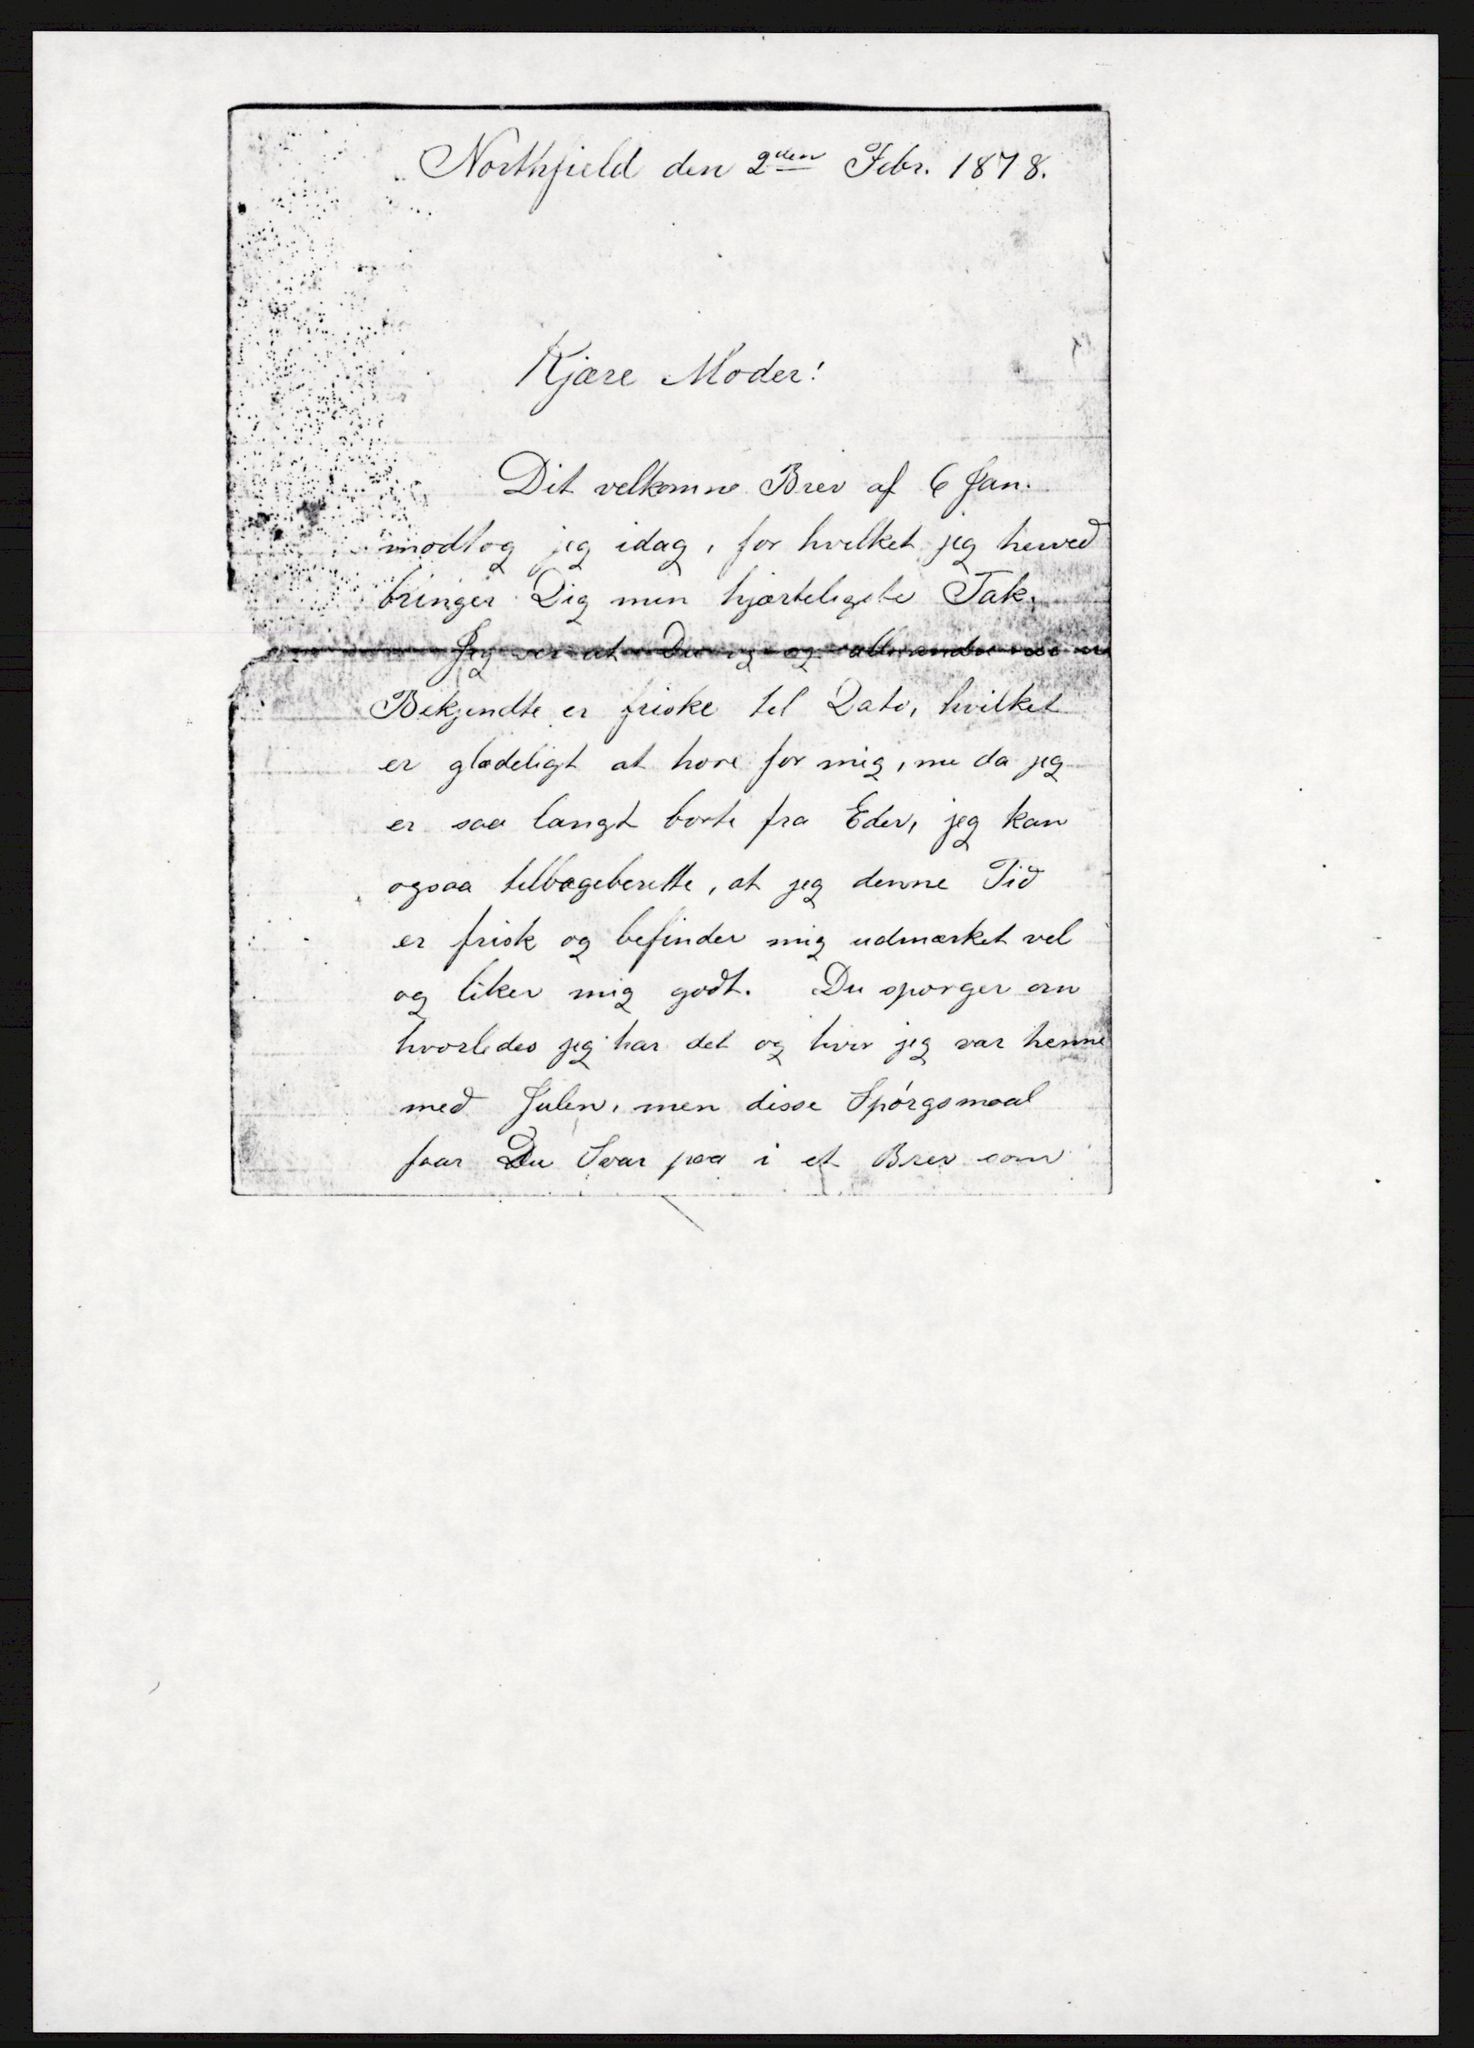 Northfield den 2den Febr. 1878.
Kjære Moder!
Dit velkomne Brev af 6 Jan.
modtog jeg idag, for hvilket jeg herved
bringer Dig min hjærteligste Tak.
Jeg ser at Du og
Bekjendte er friske til Dato, hvilket
er glædeligt at høre for mig, nu da jeg
er saa langt borte fra Eder, jeg kan
ogsaa tilbageberette, at jeg denne Tid
er frisk og befinder mig udmærket vel
og liker mig godt. Du spørger om
hvorledes jeg har det og hvor jeg var henne
med Julen, men disse Spørgsmaal
faar Du Svar paa i et Brev som